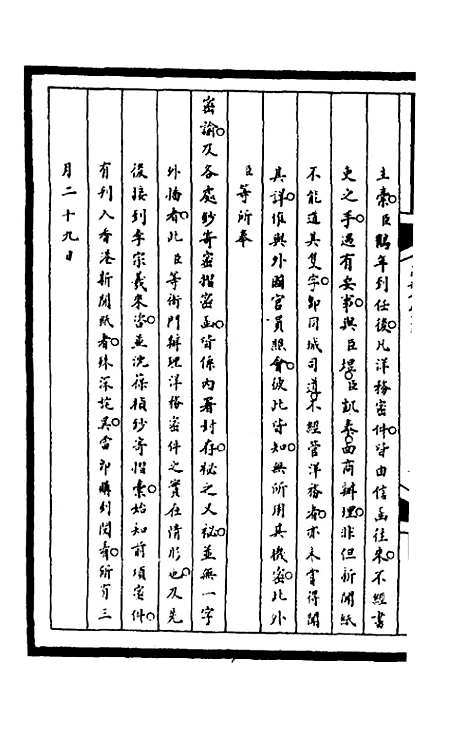 主稾臣鶴年到任後凡洋務密件皆由信函往來不經書
吏之手遇有要事與臣焜臣凱泰面商辦理非但新聞紙
不能道其隻字卽同城司道不經管洋務者亦未嘗得聞
其詳惟與外國官員照會彼此皆知無所用其機密此外
臣等所奉
密諭及各處鈔寄密摺密函皆係內署封存秘之又秘並無一字
外播者此臣等衙門辦理洋務密件之實在情形也及先
後接到李宗羲來咨並沈葆楨鈔寄摺稾始知前項密件
有刊入香港新聞紙者殊深詫異當卽購到閱看所有三
月二十九日